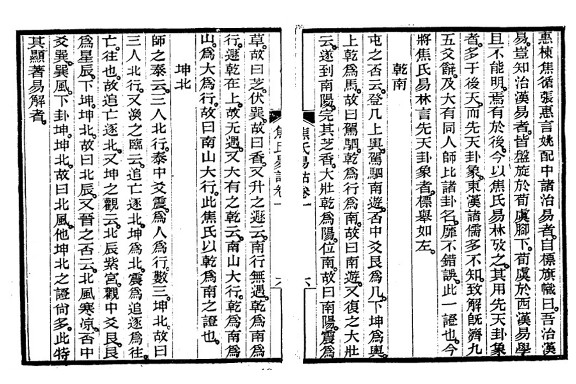 惠棟焦循張惠言姚配中諸治易者自標旗幟曰吾治漢
易豈知治漢易者皆盤旋於荀虞腳下荀虞於西漢易學
且不能明焉有於後今以焦氏易林攷之其用先天卦象
者多于後天而先天卦象東漢諸儒多不知致解既濟九
五爻辭及大有同人師比諸卦名靡不錯誤此一證也今
將焦氏易林言先天卦象者標舉如左
乾南
屯之否云登几上輿駕駟南遊否中爻艮為几下坤為輿
上乾為馬故曰駕駟乾為行為南故曰南遊又復之大壯
云遂到南陽完其芝香大壯乾為陽位南故曰南陽震為
焦氏易詁卷一
六
草故曰芝伏巽故曰香又升之遯云南行無遇乾為南為
行遯乾在上故無遇又大有之乾云南山大行乾為南為
山為大為行故曰南山大行此焦氏以乾為南之證也
坤北
師之泰云三人北行泰中爻震為人為行數三坤北故曰
三人北行又渙之臨云追亡逐北坤為北震為追逐為往
亡往也故追亡逐北又坤之觀云北辰紫宮觀中爻艮艮
為星辰下坤坤北故曰北辰又晉之否云北風寒涼否中
爻巽巽風下卦坤坤北故曰北風他坤北之證尚多此特
其顯著易解者
焦氏易詁卷一
六